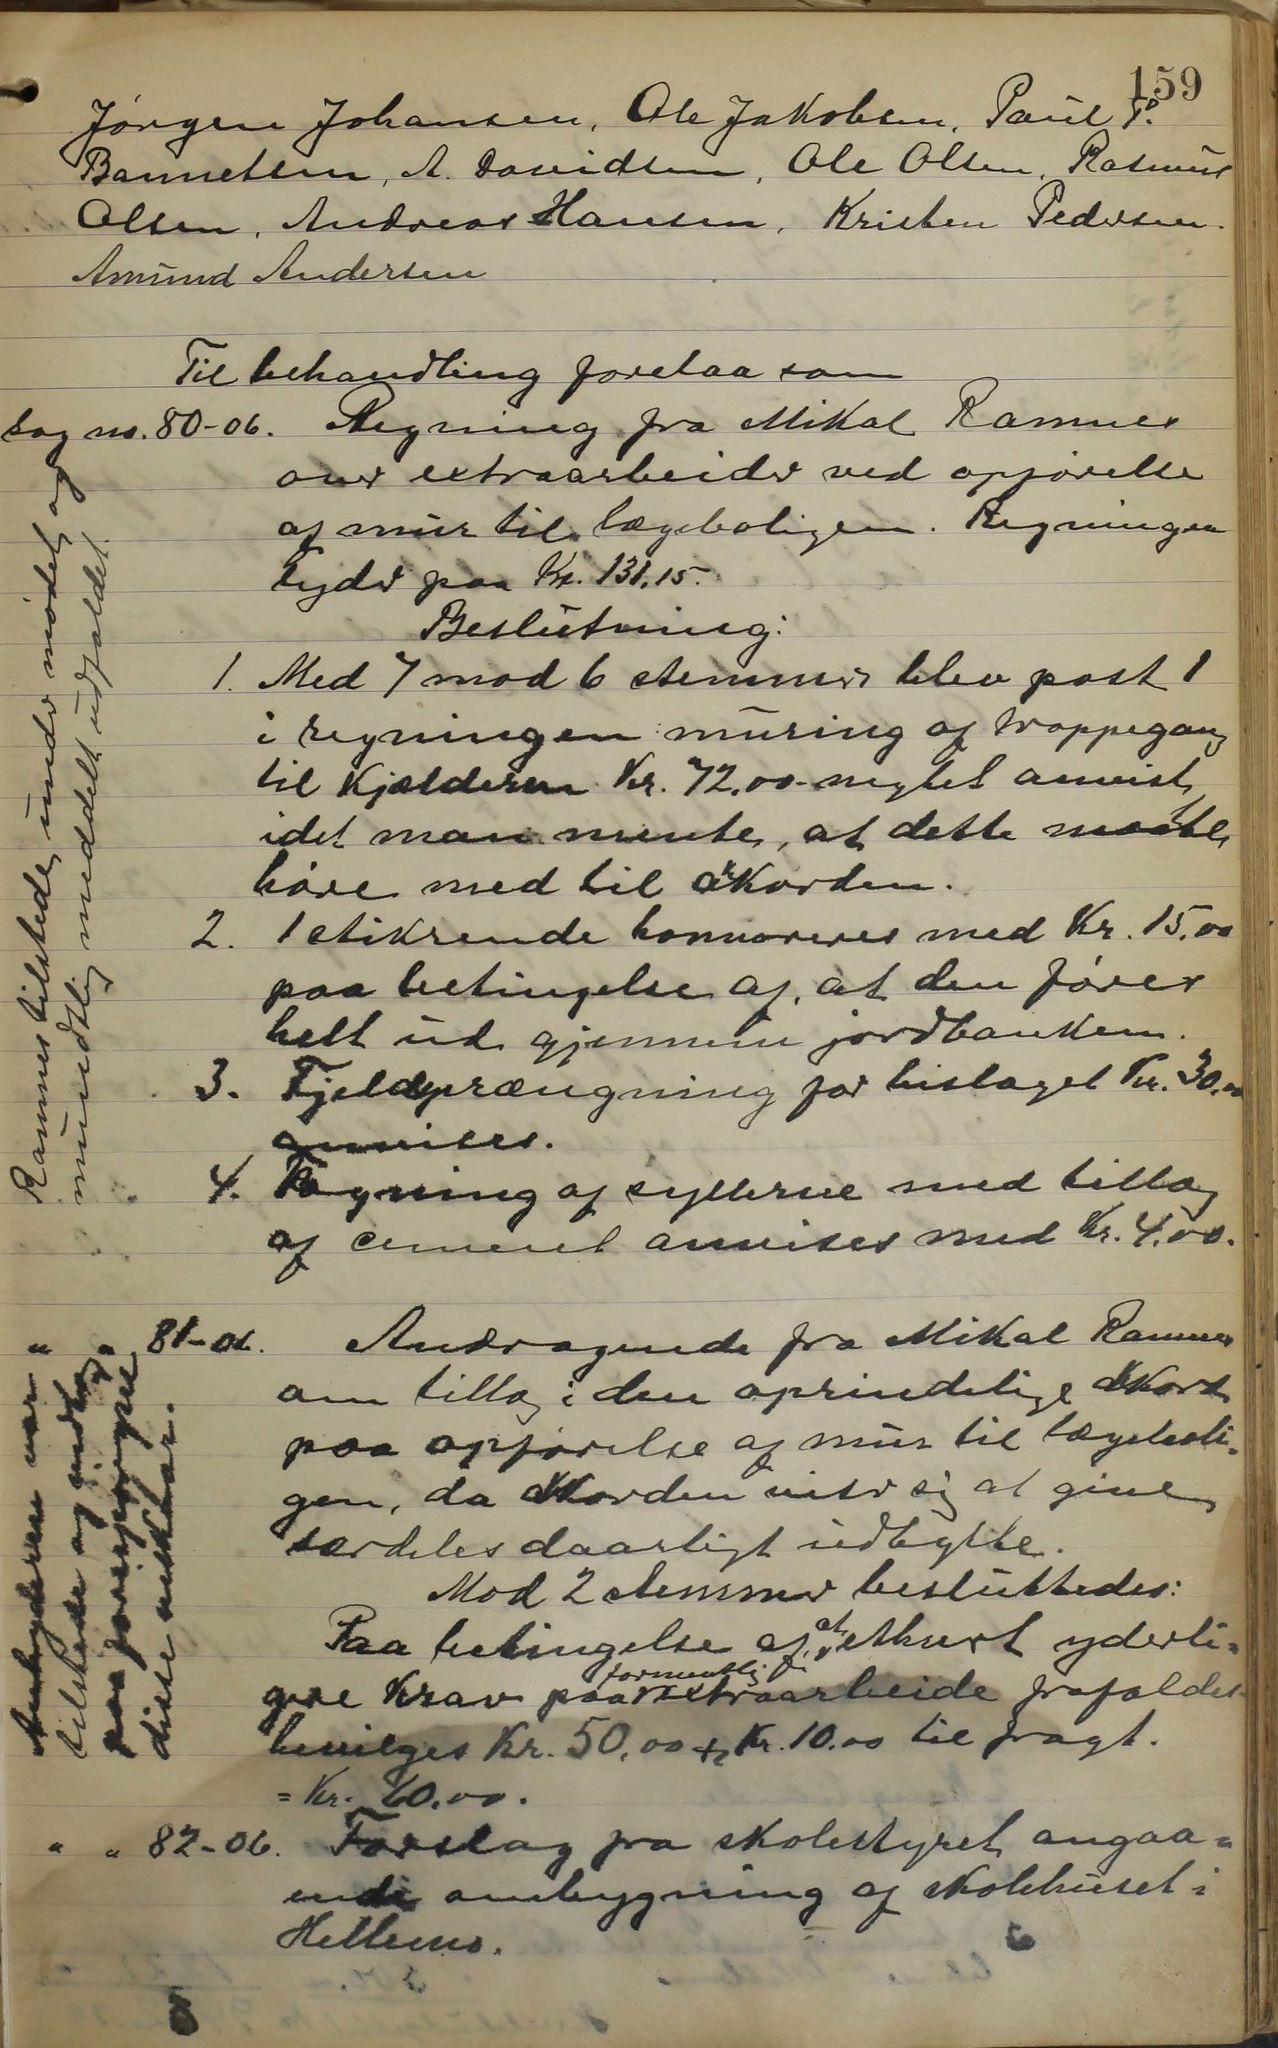 159
Jørgen Johansen, Ole Jakobsen, Paul P.
Bannetsen, A. Davidsen, Ole Olsen, Rasmus
Olsen, Andreas Hansen, Kristen Pedersen.
Amund Andersen
Til behandling forelaa som
Sag no. 80-06. Regning fra Mikal Ramnes
over extraarbeider ved opførelse
af mur til lægeboligen. Regningen
lyder paa Kr. 131,15.
Beslutning:
1. Med 7 mod 6 stemmer blev post 1
i regningen muring af trappegang
til kjælderen Kr. 72,00 negtet anvist,
idet man mente, at dette maatte
høre med til akkorden.
2. 1 stikrende honnoreres med Kr. 15,00
paa betingelse af, at den føres
helt ud gjennem jordbanken.
3. Fjeldsprængning for bislaget Kr. 30,00
anvises.
4. Fugning af syllerne med tillæg
af cement anvises med Kr. 4,00.
Ramnes tilstede under mødet og
mundtlig meddelt udfaldet.
" " 81-06. Andragende fra Mikal Ramnes
om tillæg i den oprindelige akkord
paa opførelse af mur til lægeboli-
gen, da akkorden viser sig at give
særdeles daarligt udbytte.
Mod 2 stemmer besluttedes:
Paa betingelse af, at ethvert yderli-
gere krav paa formentlig extraarbeide frafaldes
bevilges Kr. 50,00 + Kr. 10.00 til fragt.
= Kr. 60,00.
Anbyderen var
tilstede og undtog
paa forespørgsel
disse vilkaar.
" " 82-06. Forslag fra skolestyret angaa-
ende ombygning af skolehuset i
Hellemo.